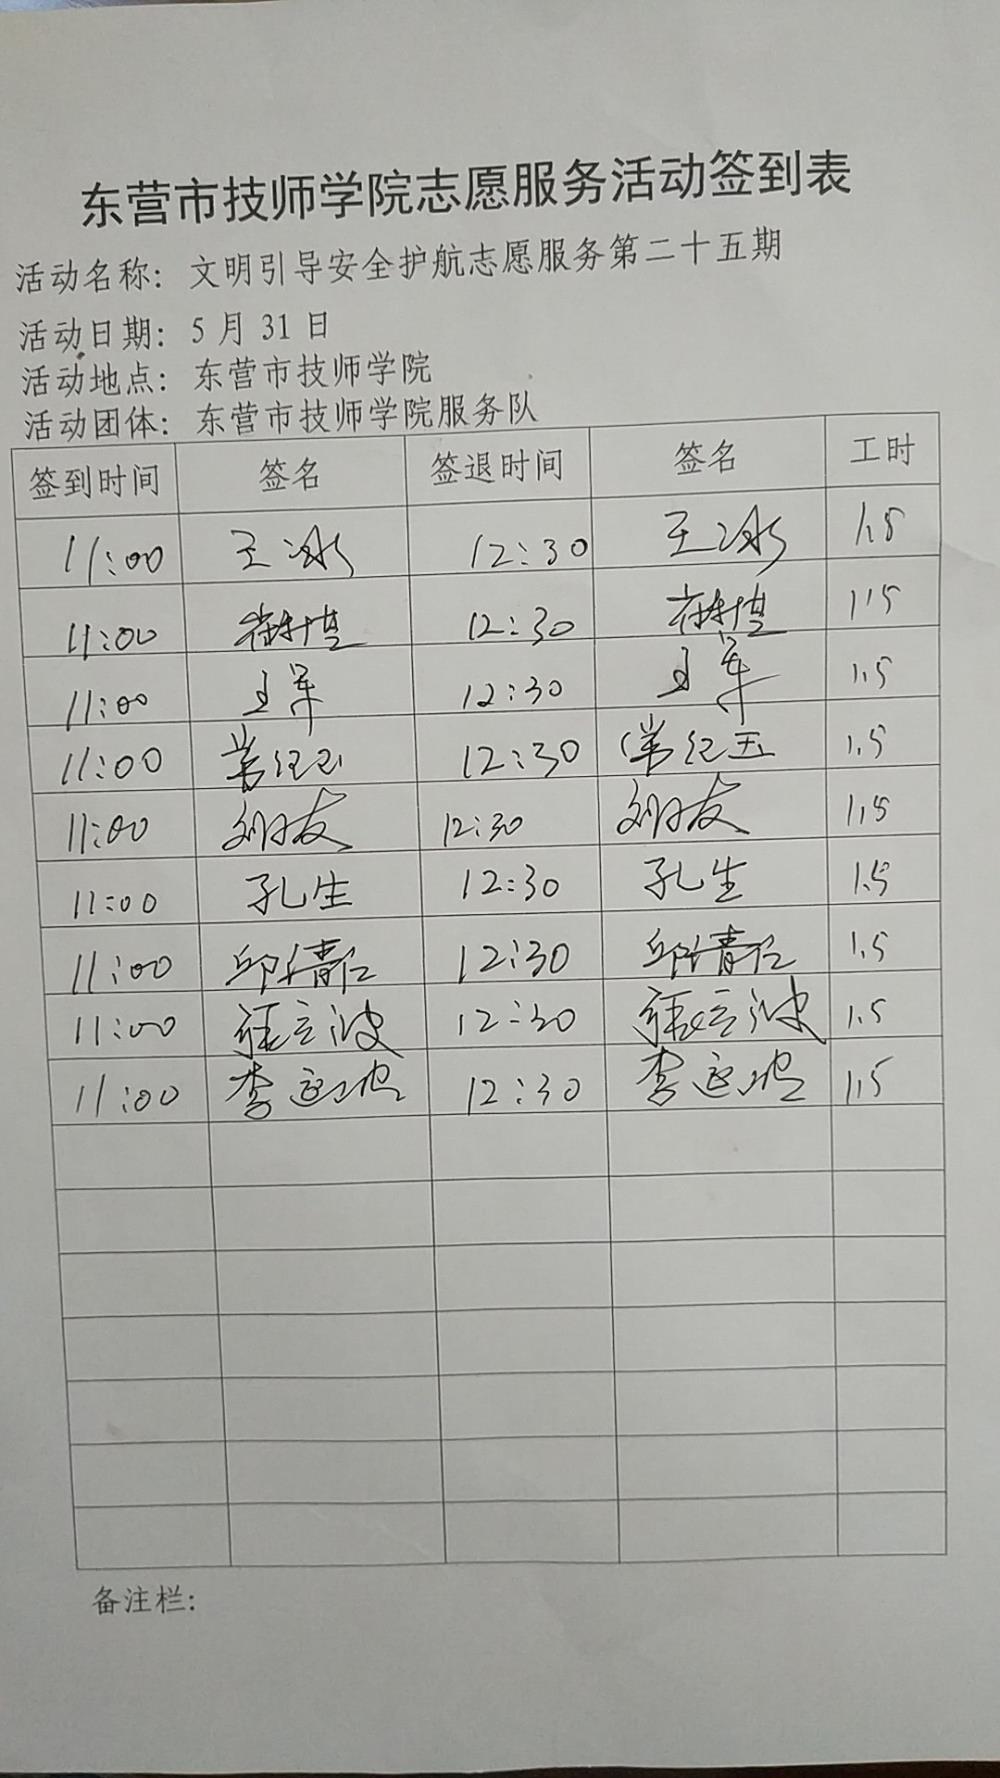 东营市技师学院志愿服务活动签到表
活动名称：文明引导安全护航志愿服务第二十五期
活动日期：5月31日
活动地点：东营市技师学院
活动团体：东营市技师学院服务队
签到时间 签名 签退时间 签名 工时
11:00 王冰 12:30 王冰 1.5
11:00 12:30 1.5
11:00 王军 12:30 王军 1.5
11:00 常纪玉 12:30 常纪玉 1.5
11:00 刘友 12:30 刘友 1.5
11:00 孔生 12:30 孔生 1.5
11:00 12:30 1.5
11:00 12:30 1.5
11:00 李延波 12:30 李延波 1.5
备注栏：